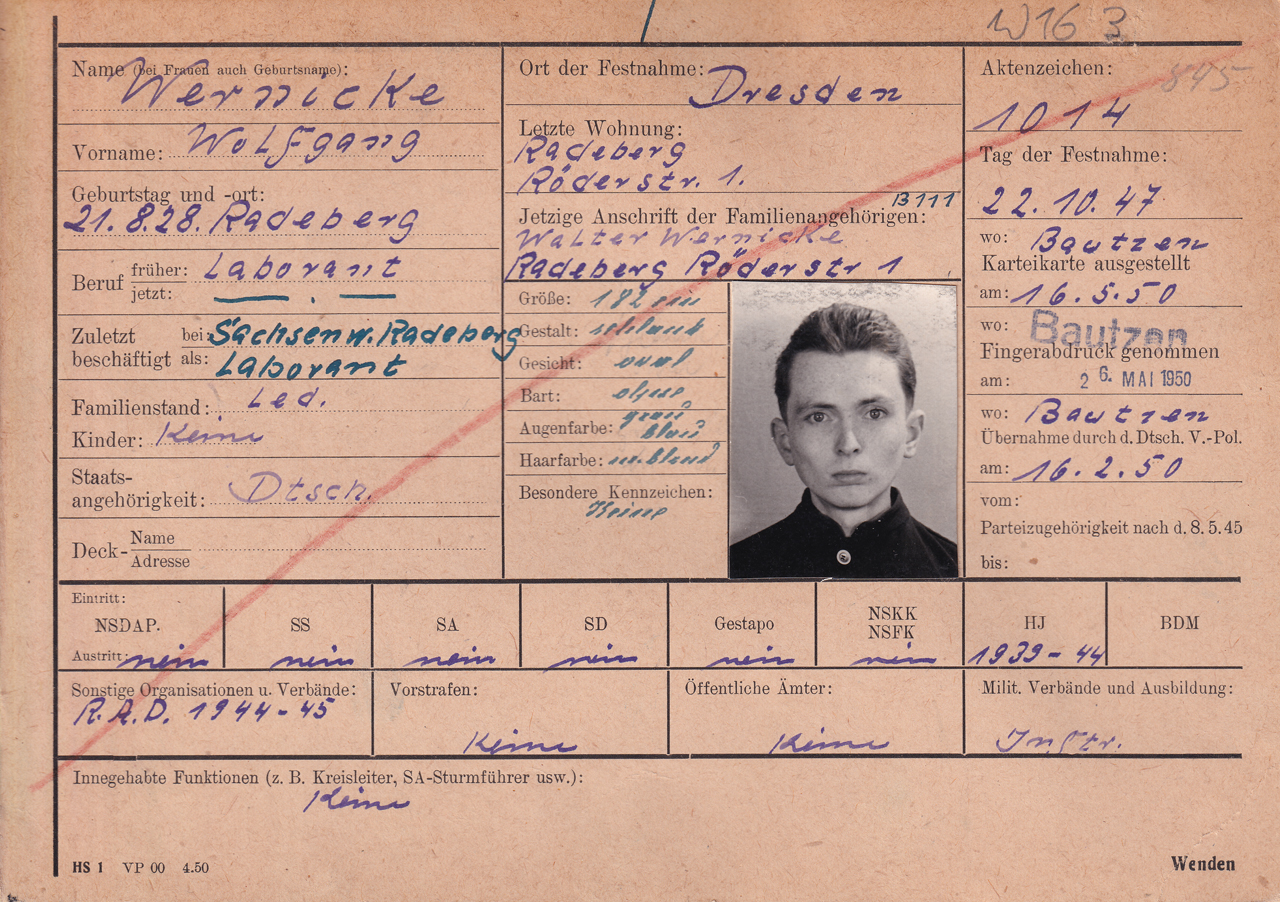 W16 3
845
Name (bei Frauen auch Geburtsname):
Wernicke
Vorname: Wolfgang
Geburtstag und -ort:
21.8.28. Radeberg
Beruf
früher: Laborant
jetzt: — . —
Zuletzt beschäftigt
bei: Sachsenw. Radeberg
als: Laborant
Familienstand: Led.
Kinder: Keine
Staats-
angehörigkeit: Dtsch.
Deck-
Name
Adresse
Ort der Festnahme:
Dresden
Letzte Wohnung:
Radeberg
Röderstr. 1.
B111
Jetzige Anschrift der Familienangehörigen:
Walter Wernicke
Radeberg Röderstr 1
Größe: 182 cm
Gestalt: schlank
Gesicht: oval
Bart: ohne
Augenfarbe: grau
blau
Haarfarbe: m.blond
Besondere Kennzeichen:
Keine
Aktenzeichen:
1014
Tag der Festnahme:
22.10.47
wo: Bautzen
Karteikarte ausgestellt
am: 16.5.50
wo: Bautzen
Fingerabdruck genommen
am: 26. MAI 1950
wo: Bautzen
Übernahme durch d. Dtsch. V.-Pol.
am: 16.2.50
vom:
Parteizugehörigkeit nach d. 8. 5. 45
bis:
Eintritt:
NSDAP.
Austritt: nein
SS
nein
SA
nein
SD
nein
Gestapo
nein
NSKK
NSFK
nein
HJ
1939-44
BDM
Sonstige Organisationen u. Verbände:
R.A.D. 1944-45
Vorstrafen:
Keine
Öffentliche Ämter:
Keine
Milit. Verbände und Ausbildung:
Inftr.
Innegehabte Funktionen (z. B. Kreisleiter, SA-Sturmführer usw.):
Keine
HS 1 VP 00 4.50
Wenden